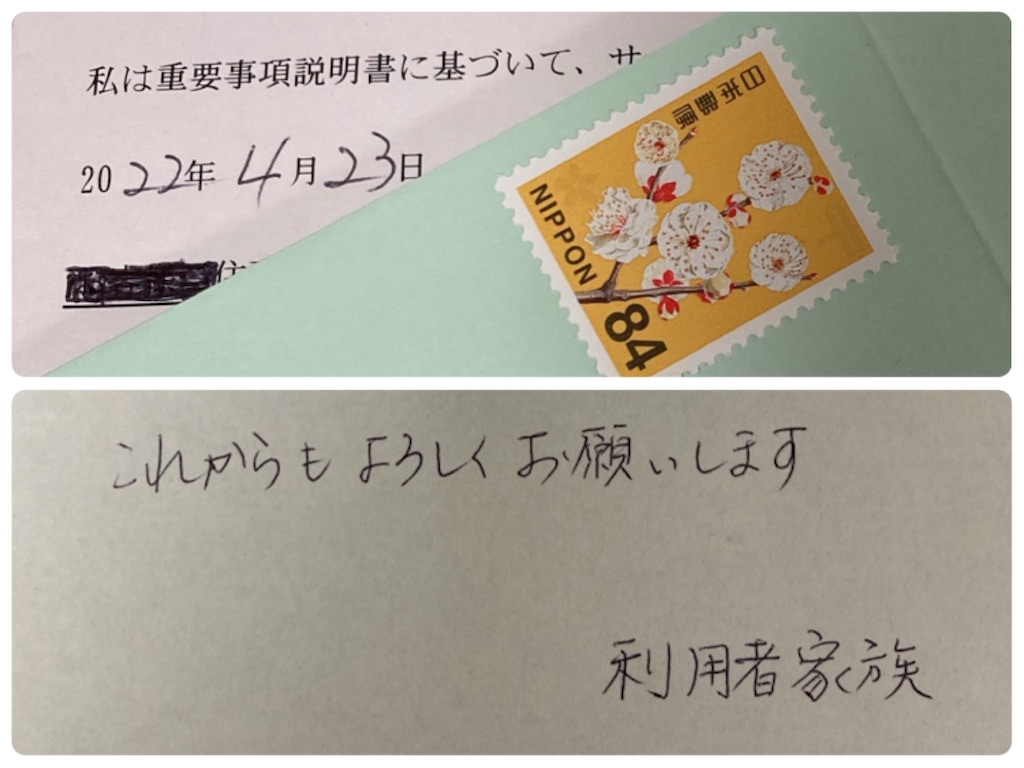 私は重要事項説明書に基づいて、サ
2022年 4月23日
日本郵便
NIPPON
84
これからもよろしくお願いします
利用者家族